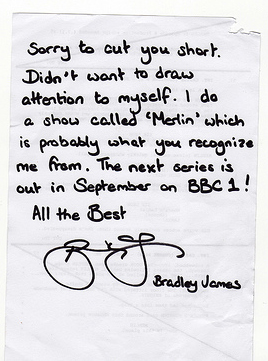 Sorry to cut you short.
Didn't want to draw
attention to myself. I do
a show called 'Merlin' which
is probably what you recognize
me from. The next series is
out in September on BBC 1!
All the Best
Bradley James